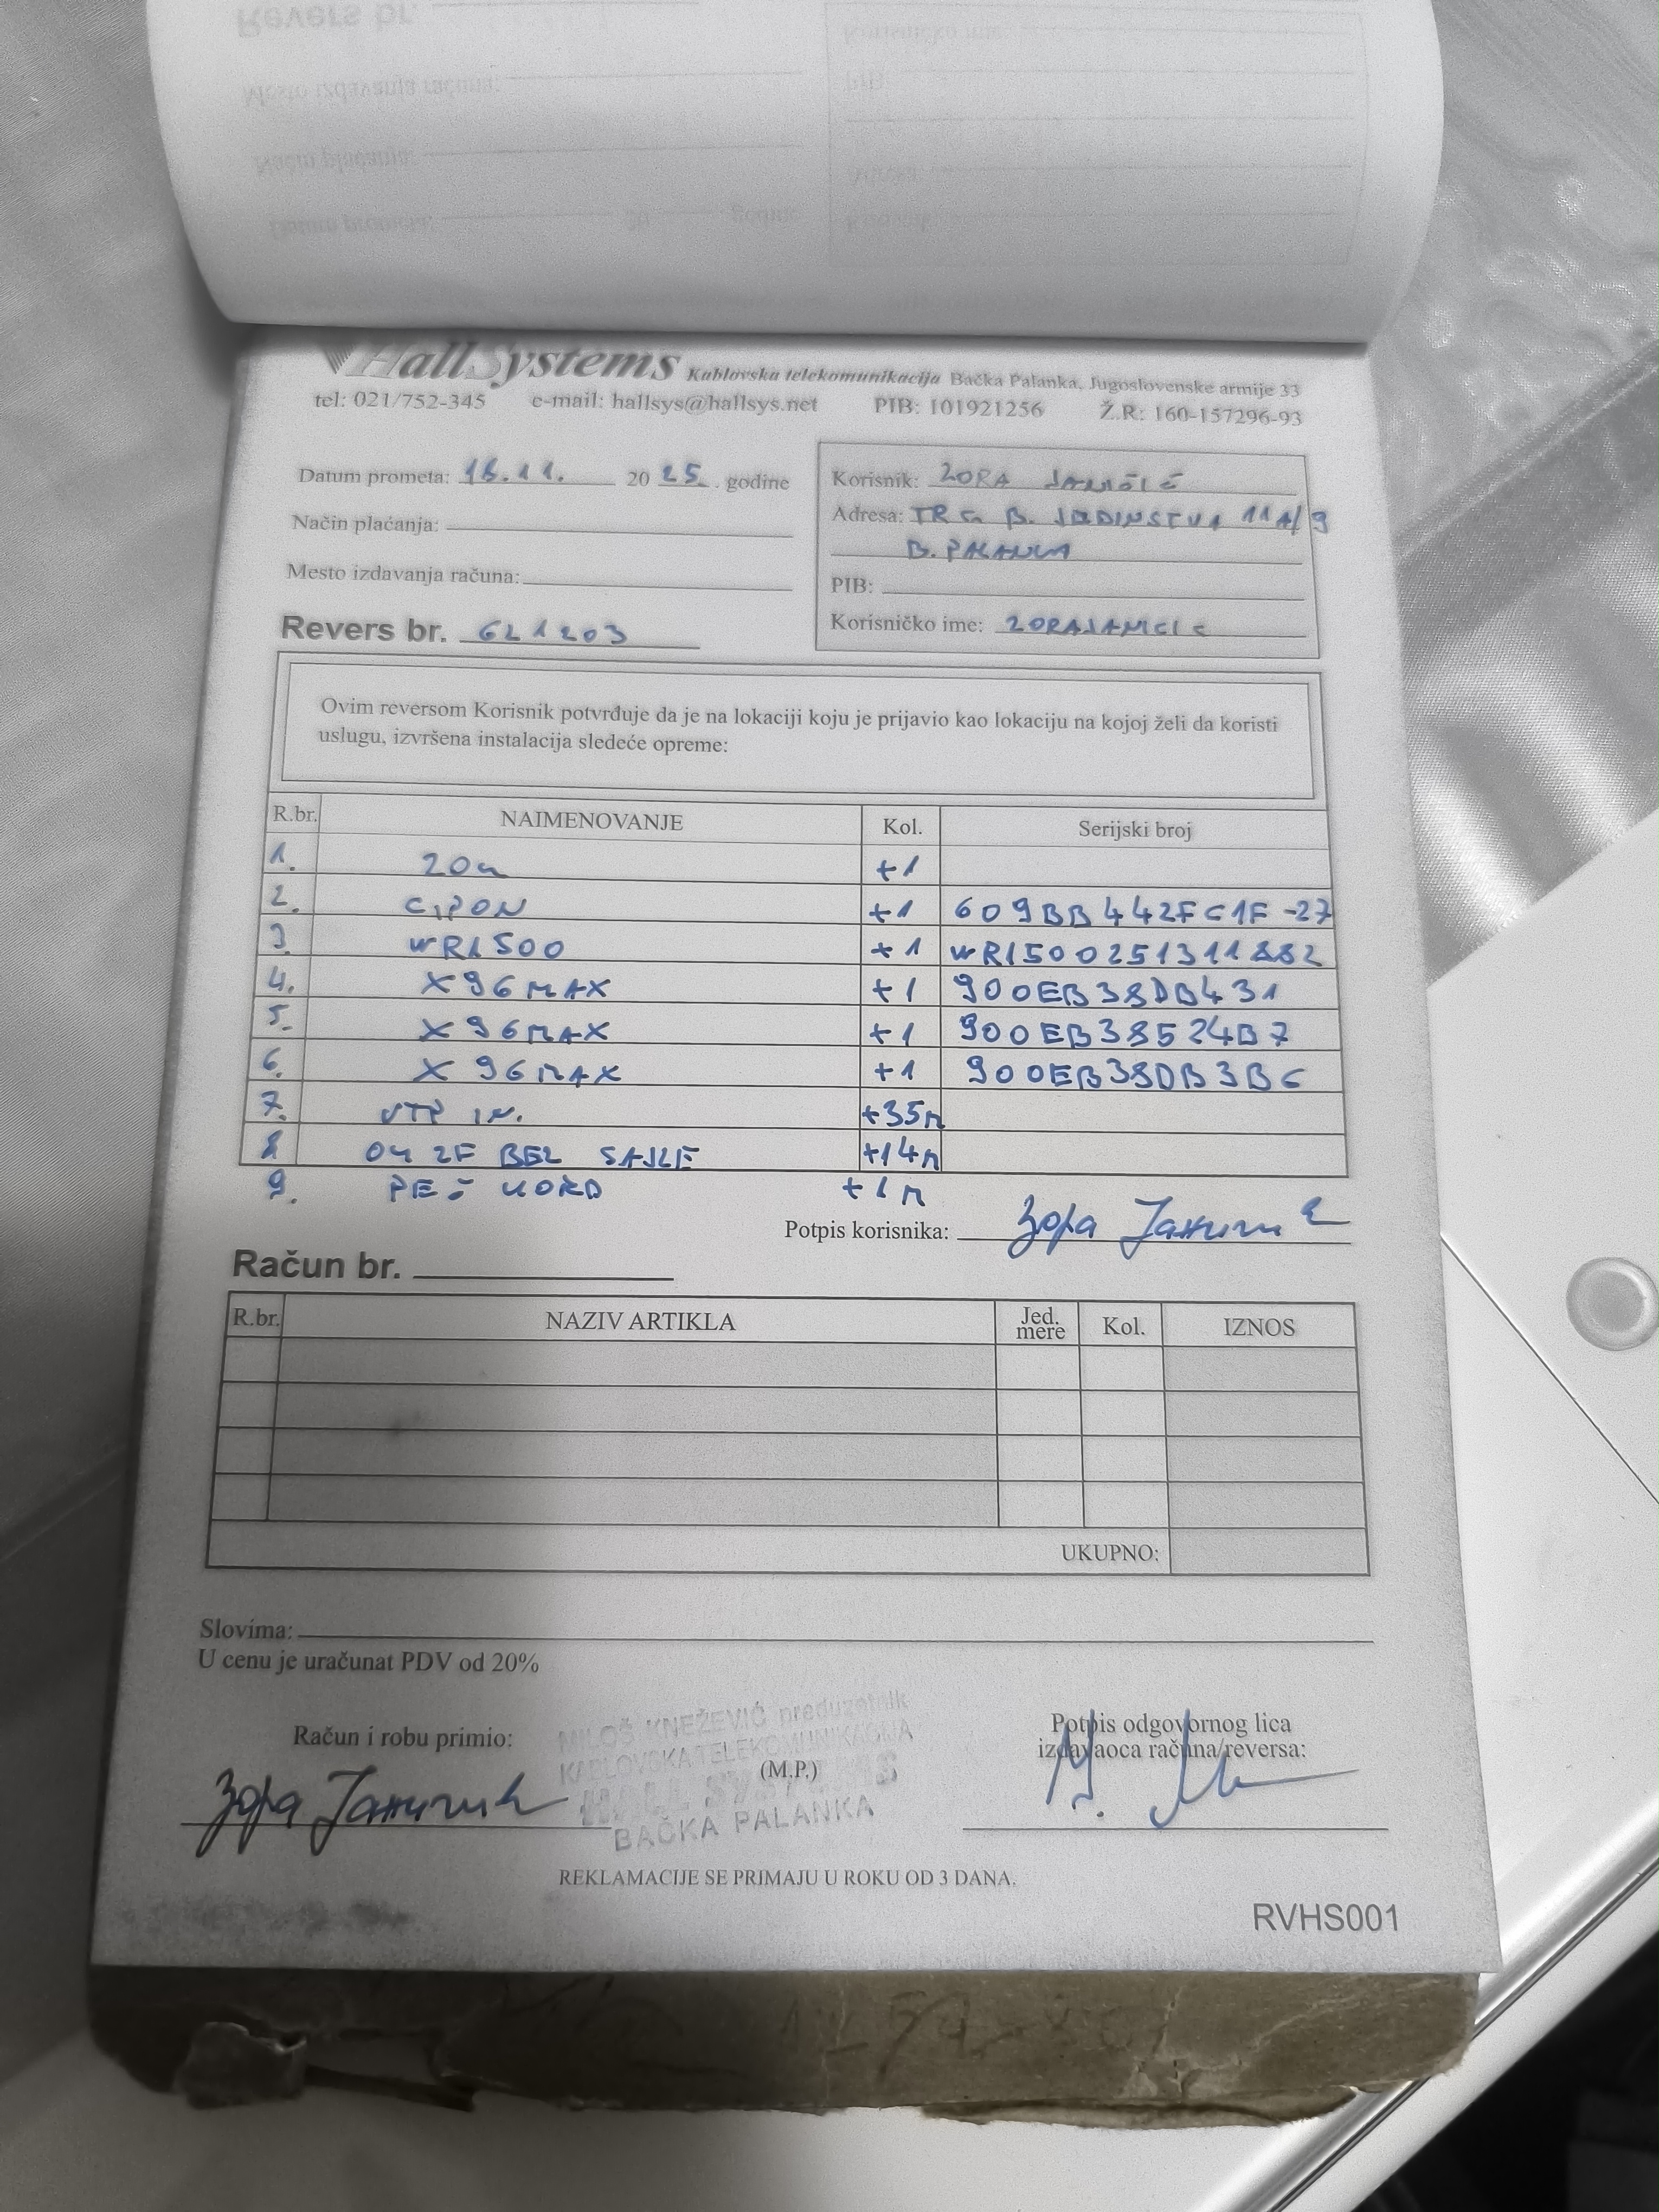 HallSystems Kablovska telekomunikacija Bačka Palanka, Jugoslovenske armije 33
tel: 021/752-345 e-mail: hallsys@hallsys.net PIB: 101921256 Ž.R: 160-157296-93
Datum prometa: 16.11. 20 25. godine
Način plaćanja:
Mesto izdavanja računa:
Revers br. 621203
Korisnik: ZORA JANIČIĆ
Adresa: TRG B. JEDINSTVA 11A/9
B. PALANKA
PIB:
Korisničko ime: ZORAJANICIC
Ovim reversom Korisnik potvrđuje da je na lokaciji koju je prijavio kao lokaciju na kojoj želi da koristi
uslugu, izvršena instalacija sledeće opreme:
R.br. NAIMENOVANJE Kol. Serijski broj
1. ZON +1
2. CIPON +1 609BB442FC1F-27
3. WR1500 +1 WR1500251311882
4. X96MAX +1 900EB38DB431
5. X96MAX +1 900EB38524B7
6. X96MAX +1 900EB38DB3B6
7. UTP IN. +35m
8 04 2F BEZ SAJLE +14m
9. PEČ KORD +1m
Potpis korisnika: Зора Јаничић
Račun br.
R.br. NAZIV ARTIKLA Jed. mere Kol. IZNOS
UKUPNO:
Slovima:
U cenu je uračunat PDV od 20%
Račun i robu primio:
Зора Јаничић
MILOŠ KNEŽEVIĆ preduzetnik
KABLOVSKA TELEKOMUNIKACIJA
(M.P.)
HALL SYSTEMS
BAČKA PALANKA
Potpis odgovornog lica
izdavaoca računa/reversa:
REKLAMACIJE SE PRIMAJU U ROKU OD 3 DANA.
RVHS001